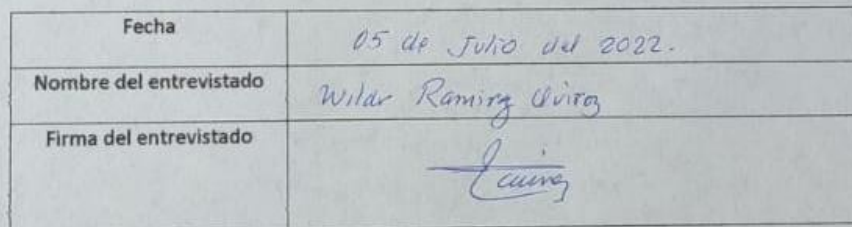 Fecha
05 de Julio del 2022.
Nombre del entrevistado
Wildr Ramirz Quiroz
Firma del entrevistado